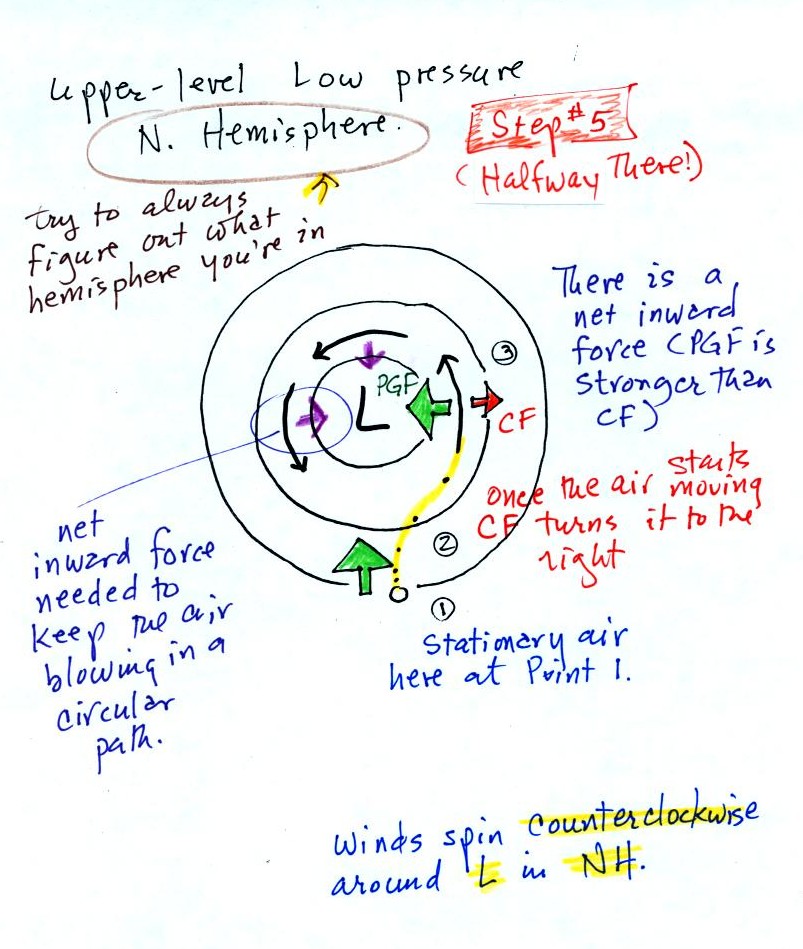 Upper-level Low pressure
N. Hemisphere.
Step #5
(Halfway There!)
try to always
figure out what
hemisphere you're in
There is a
net inward
force (PGF is
stronger than
CF)
③
PGF
L
CF
once the air starts moving
CF turns it to the
right
②
①
net
inward force
needed to
keep the air
blowing in a
circular
path.
Stationary air
here at Point 1.
Winds spin counterclockwise
around L in NH.